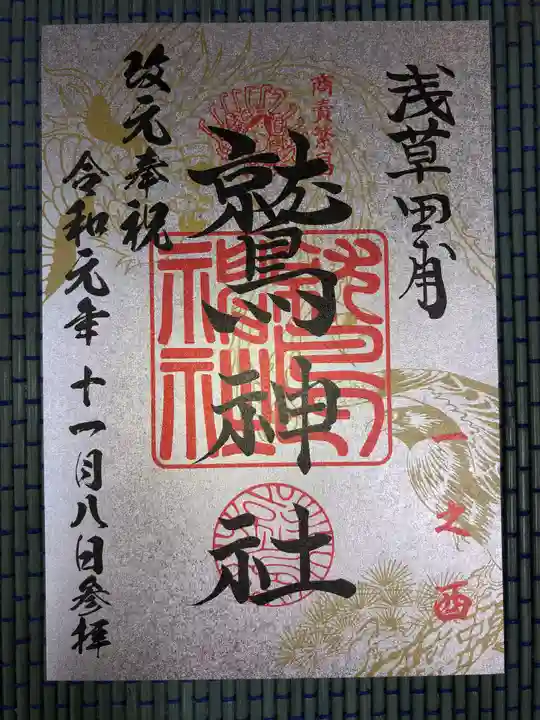 浅草田甫
一之酉
商賣繁昌
鷲神社
改元奉祝
令和元年 十一月八日参拝